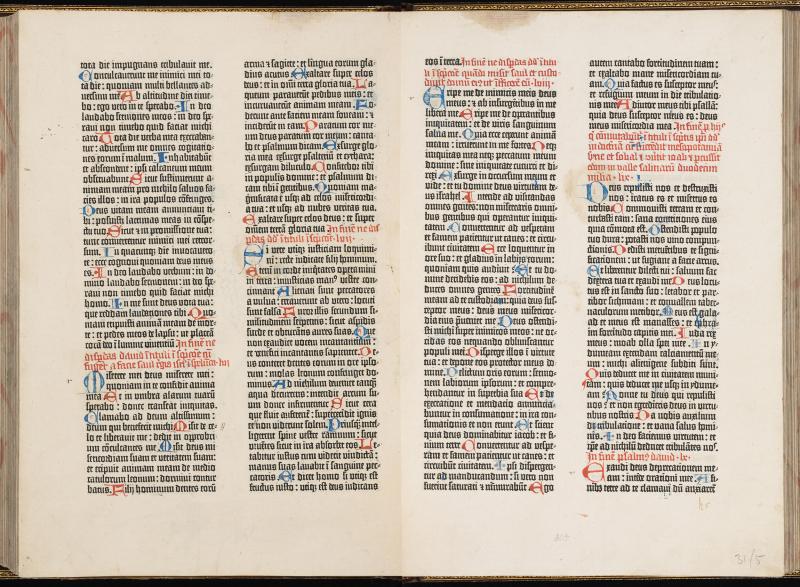 tota die impugnans tribulavit me.
Conculcaverunt me inimici mei to-
ta die: quoniam multi bellantes ad-
versum me. Ab altitudine diei time-
bo: ego vero in te sperabo. In deo
laudabo sermones meos: in deo spe-
ravi non timebo quid faciat michi
caro. Tota die verba mea execraban-
tur: adversum me omnes cogitatio-
nes eorum in malum. Inhabitabunt
et abscondent: ipsi calcaneum meum
observabunt. Sicut sustinuerunt
animam meam pro nichilo salvos fa-
cies illos: in ira populos confringes.
Deus vitam meam annunciavi ti-
bi: posuisti lacrimas meas in conspe-
ctu tuo. Sicut et in promissione tua:
tunc convertentur inimici mei retror-
sum. In quacumque die invocavero
te: ecce cognovi quoniam deus meus
es. In deo laudabo verbum: in do-
mino laudabo sermonem: in deo spe-
ravi non timebo quid faciat michi
homo. In me sunt deus vota tua:
que reddam laudationes tibi. Quo-
niam eripuisti animam meam de mor-
te: et pedes meos de lapsu: ut placeā
corā deo ī lumine viventiū.
Miserere mei deus miserere mei:
quoniam in te confidit anima
mea. Et in umbra alarum tuarū
sperabo: donec transeat iniquitas.
Clamabo ad deum altissimum:
deum qui benefecit michi. Misit de ce-
lo et liberavit me: dedit in opprobri-
um cōculcantes me. Misit deus mi-
sericordiam suam et veritatem suam:
et eripuit animam meam de medio
catulorum leonum: dormivi contur-
batus. Filii hominum dentes eorū
arma et sagitte: et lingua eorum gla-
dius acutus. Exaltare super celos
deus: et in omnē terrā gloria tua. La-
queum paraverunt pedibus meis: et
incurvaverunt animam meam. Fo-
derunt ante faciem meam foveam: et
inciderunt in eam. Paratum cor me-
um deus paratum cor meum: canta-
bo et psalmum dicam. Exsurge glo-
ria mea exsurge psalterium et cythara:
exsurgam diluculo. Confitebor tibi
in populis domine: et psalmum di-
cam tibi in gentibus. Quoniam ma-
gnificata est usque ad celos misericordia
tua: et usque ad nubes veritas tua.
Exaltare super celos deus: et super
omnem terrā gloria tua.
Si vere utique iusticiam loquimi-
ni: recte iudicate filii hominum.
Etenim in corde iniquitates operamini
in terra: iniusticias manus vestre con-
cinnant. Alienati sunt peccatores
a vulva: erraverunt ab utero: locuti
sunt falsa. Furor illis secundum si-
militudinem serpentis: sicut aspidis
surde et obturantis aures suas. Que
non exaudiet vocem incantantium:
et venefici incantantis sapienter. De-
us conteret dentes eorum in ore ipso-
rum: molas leonum confringet do-
minus. Ad nichilum devenient tanq̄
aqua decurrens: intendit arcum su-
um donec infirmentur. Sicut cera
que fluit auferent: supercecidit ignis
et non viderunt solem. Priusque intel-
ligerent spine vestre ramnum: sicut
viventes sicut in ira absorbet eos. Le-
tabitur iustus cum viderit vindictā:
manus suas lavabit ī sanguine pec-
catoris. Et dicet homo si utique est
fructus iusto: utique est deus iudicans
eos ī terra.
Eripe me de inimicis meis deus
meus: et ab insurgentibus in me
libera me. Eripe me de operantibus
iniquitatem: et de viris sanguinum
salva me. Quia ecce ceperunt animā
meam: irruerunt in me fortes. Neque
iniquitas mea neque peccatum meum
domine: sine iniquitate cucurri et di-
rexi. Exsurge in occursum meum et
vide: et tu domine deus virtutum de-
us israhel. Intende ad visitandas
omnes gentes: non miserearis omni-
bus gentibus qui operantur iniqui-
tatem. Convertentur ad vesperam
et famem patientur ut canes: et circu-
ibunt civitatem. Ecce loquentur in
ore suo: et gladius in labiis eorum:
quoniam quis audivit. Et tu do-
mine deridebis eos: ad nichilum de-
duces omnes gentes. Fortitudinē
meam ad te custodiam: quia deus sus-
ceptor meus: deus meus misericor-
dia eius preveniet me. Deus ostendit
michi super inimicos meos: ne oc-
cidas eos nequando obliviscantur
populi mei. Disperge illos in virtute
tua: et depone eos protector meus do-
mine. Delictum oris eorum: sermo-
nem labiorum ipsorum: et compre-
hendantur in superbia sua. Et de
execratione et mendacio annuncia-
buntur in consumatione: in ira con-
sumationis et non erunt. Et scient
quia deus dominabitur iacob: et fi-
nium terre. Convertentur ad vespe-
ram et famem patientur ut canes: et
circuibunt civitatem. Ipsi dispergen-
tur ad manducandum: si vero non
fuerint saturati et murmurabunt. Ego
autem cantabo fortitudinem tuam:
et exaltabo mane misericordiam tu-
am. Quia factus es susceptor meus:
et refugium meum in die tribulatio-
nis mee. Adiutor meus tibi psallam:
quia deus susceptor meus es: deus
meus misericordia mea.
Deus repulisti nos et destruxisti
nos: iratus es et misertus es
nobis. Commovisti terram et con-
turbasti eam: sana contritiones eius
quia cōmota est. Ostendisti populo
tuo dura: potasti nos vino compun-
ctionis. Dedisti metuentibus te signi-
ficationem: ut fugiant a facie arcus.
Ut liberentur dilecti tui: salvum fac
dextera tua et exaudi me. Deus locu-
tus est in sancto suo: letabor et par-
tibor sichimam: et convallem taber-
naculorum metibor. Meus est gala-
ad et meus est manasses: et effraim
fortitudo capitis mei. Iuda rex
meus: moab olla spei mee. In y-
dumeam extendam calciamentū me-
um: michi alienigene subditi sunt.
Quis deducet me in civitatem muni-
tam: quis deducet me usque in ydume-
am. Nonne tu deus qui repulisti
nos: et non egredieris deus in virtu-
tibus nostris. Da nobis auxilium
de tribulatione: et vana salus homi-
nis. In deo faciemus virtutem: et
ipse ad nichilū deducet tribulātes nos.
In finē psalmus david. lx.
Exaudi deus deprecationem me-
am: intende orationi mee. A fi-
nibus terre ad te clamavi dū anxiaret
31/5